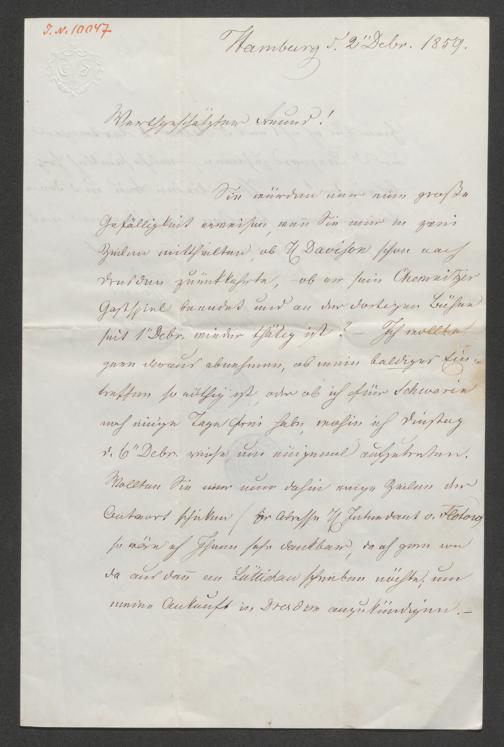 J.N. 10047
Hamburg d. 2t Debr. 1859.
Werthgeschätzter Freund!
Sie würden mir eine große
Gefälligkeit erweisen, wenn Sie mir in zwei
Zeilen mittheilten, ob H Davison schon nach
Dresden zurückkehrte, – ob er sein Chemnitzer
Gastspiel beendet und an der dortigen Bühne
seit 1t Debr. wieder thätig ist? – Ich wollte
gern daraus abnehmen, ob mein baldiges Ein-
treffen so nöthig ist, oder ob ich für Schwerin
noch einige Tage frei habe, wohin ich Dinstag
d. 6t Debr. reise um einigemal aufzutreten.
Wollten Sie mir nur dahin einige Zeilen der
Antwort schicken / per Adresse H Intendant v. Flotow
so wäre ich Ihnen sehr dankbar, da ich gern von
da aus dann an Lüttichau schreiben möchte, um
meine Ankunft in Dresden anzukündigen. –